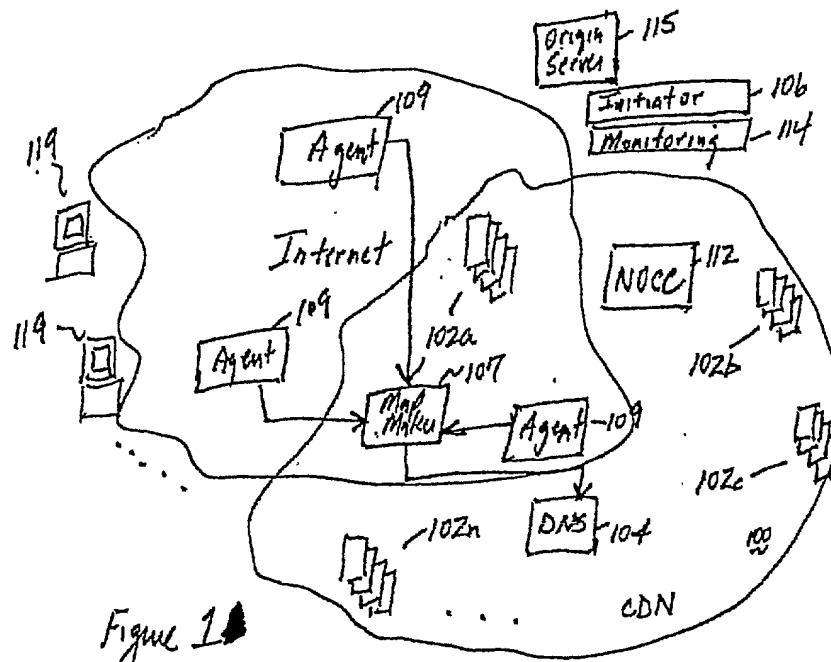 Origin
Server
115
Initiator
106
Monitoring
114
109
Agent
119
Internet
NOCC
112
102a
102b
119
109
Agent
107
Map
Maker
Agent
109
102c
DNS
104
102n
100
CDN
. . .
Figure 1